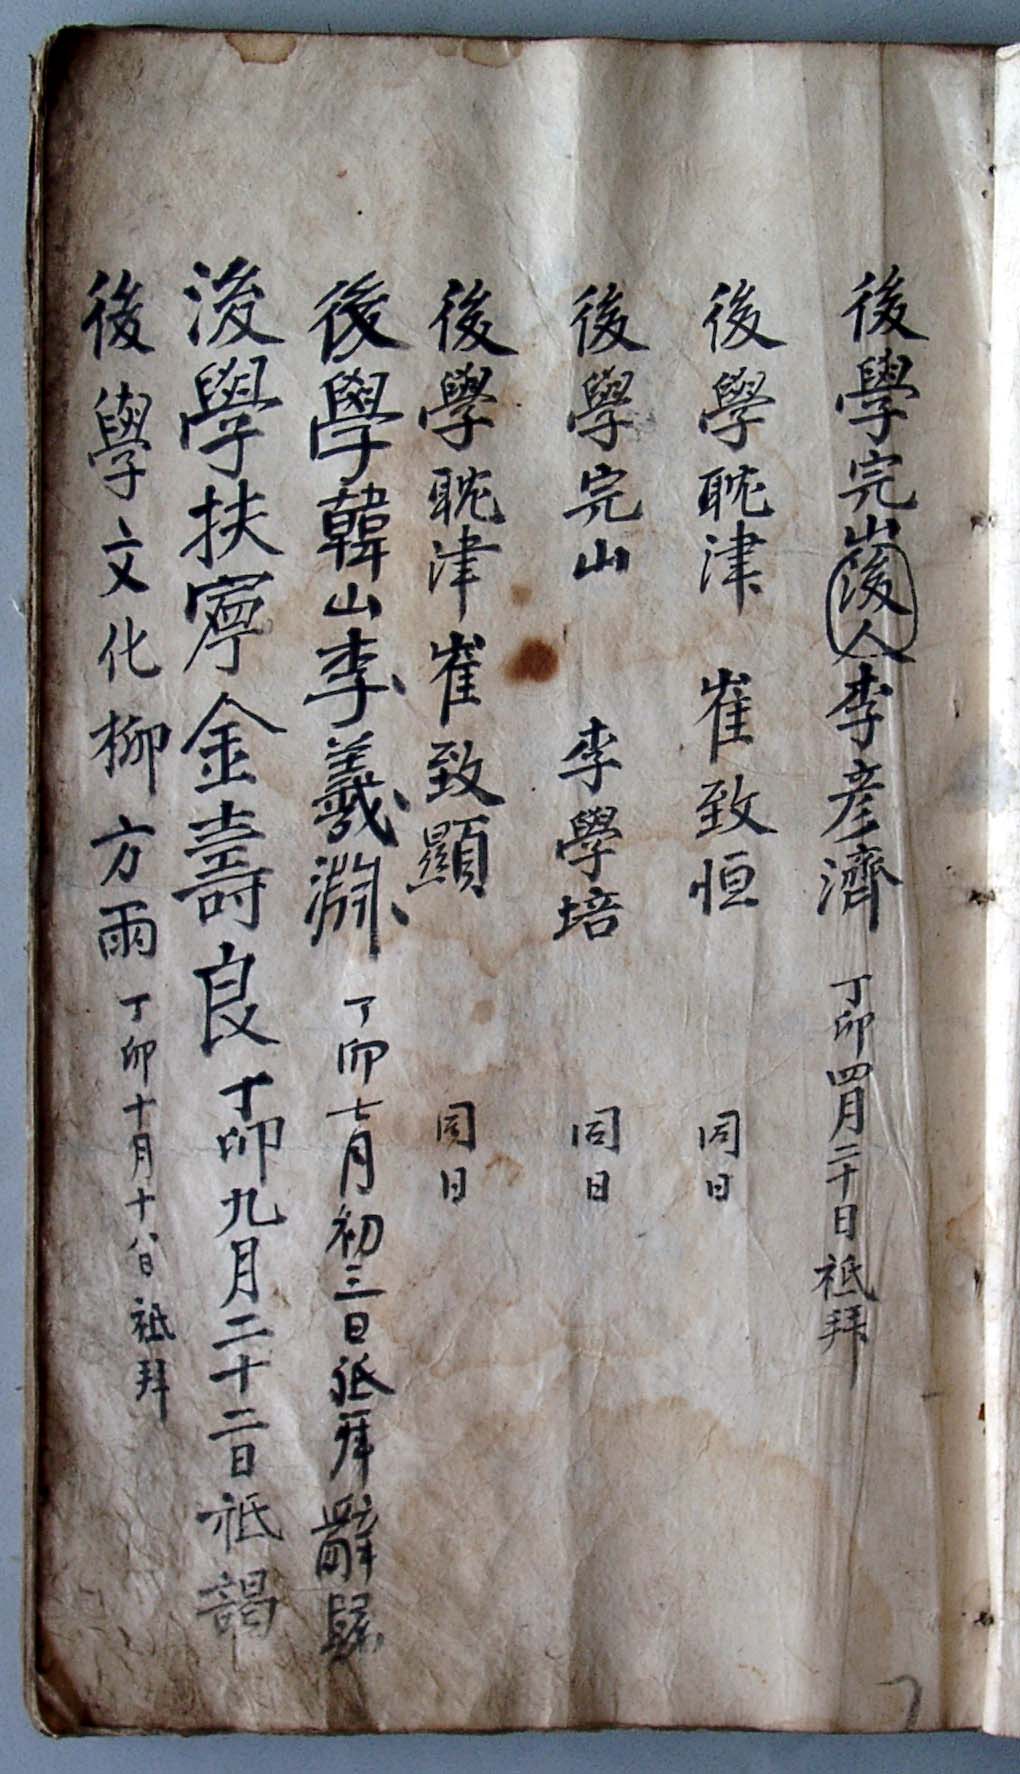 後學完山後人李彦濟 丁卯四月二十日祗拜
後學耽津 崔致恒 同日
後學完山 李學培 同日
後學耽津崔致顯 同日
後學韓山李羲淵 丁卯七月初三日祗拜辭歸
後學扶寧金壽良丁卯九月二十二日祗謁
後學文化柳方雨丁卯十月十八日祗拜